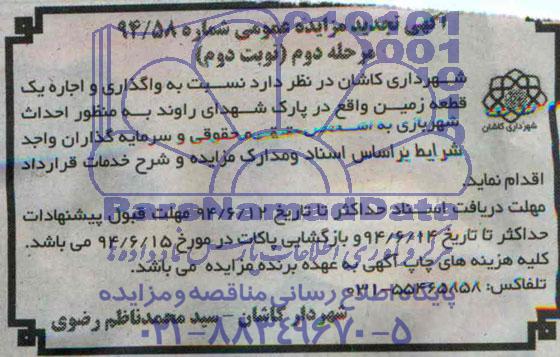 آگهی تجدید مزایده عمومی شماره ۹۴/۵۸
مرحله دوم (نوبت دوم)
شهرداری کاشان در نظر دارد نسبت به واگذاری و اجاره یک
قطعه زمین واقع در پارک شهدای راوند به منظور احداث
شهربازی به اشخاص حقیقی و حقوقی و سرمایه گذاران واجد
شرایط براساس اسناد ومدارک مزایده و شرح خدمات قرارداد
اقدام نماید.
مهلت دریافت اسناد حداکثر تا تاریخ ۹۴/۶/۱۲ مهلت قبول پیشنهادات
حداکثر تا تاریخ ۹۴/۶/۱۴ و بازگشایی پاکات در مورخ ۹۴/۶/۱۵ می باشد.
کلیه هزینه های چاپ آگهی به عهده برنده مزایده می باشد.
تلفاکس: ۵۵۴۶۵۸۵۸-۰۳۱
شهردار کاشان – سید محمدناظم رضوی
شهرداری کاشان
ParsNamadData
پایگاه اطلاع رسانی مناقصه و مزایده
۰۲۱-۸۸۳۴۹۶۷۰-۵